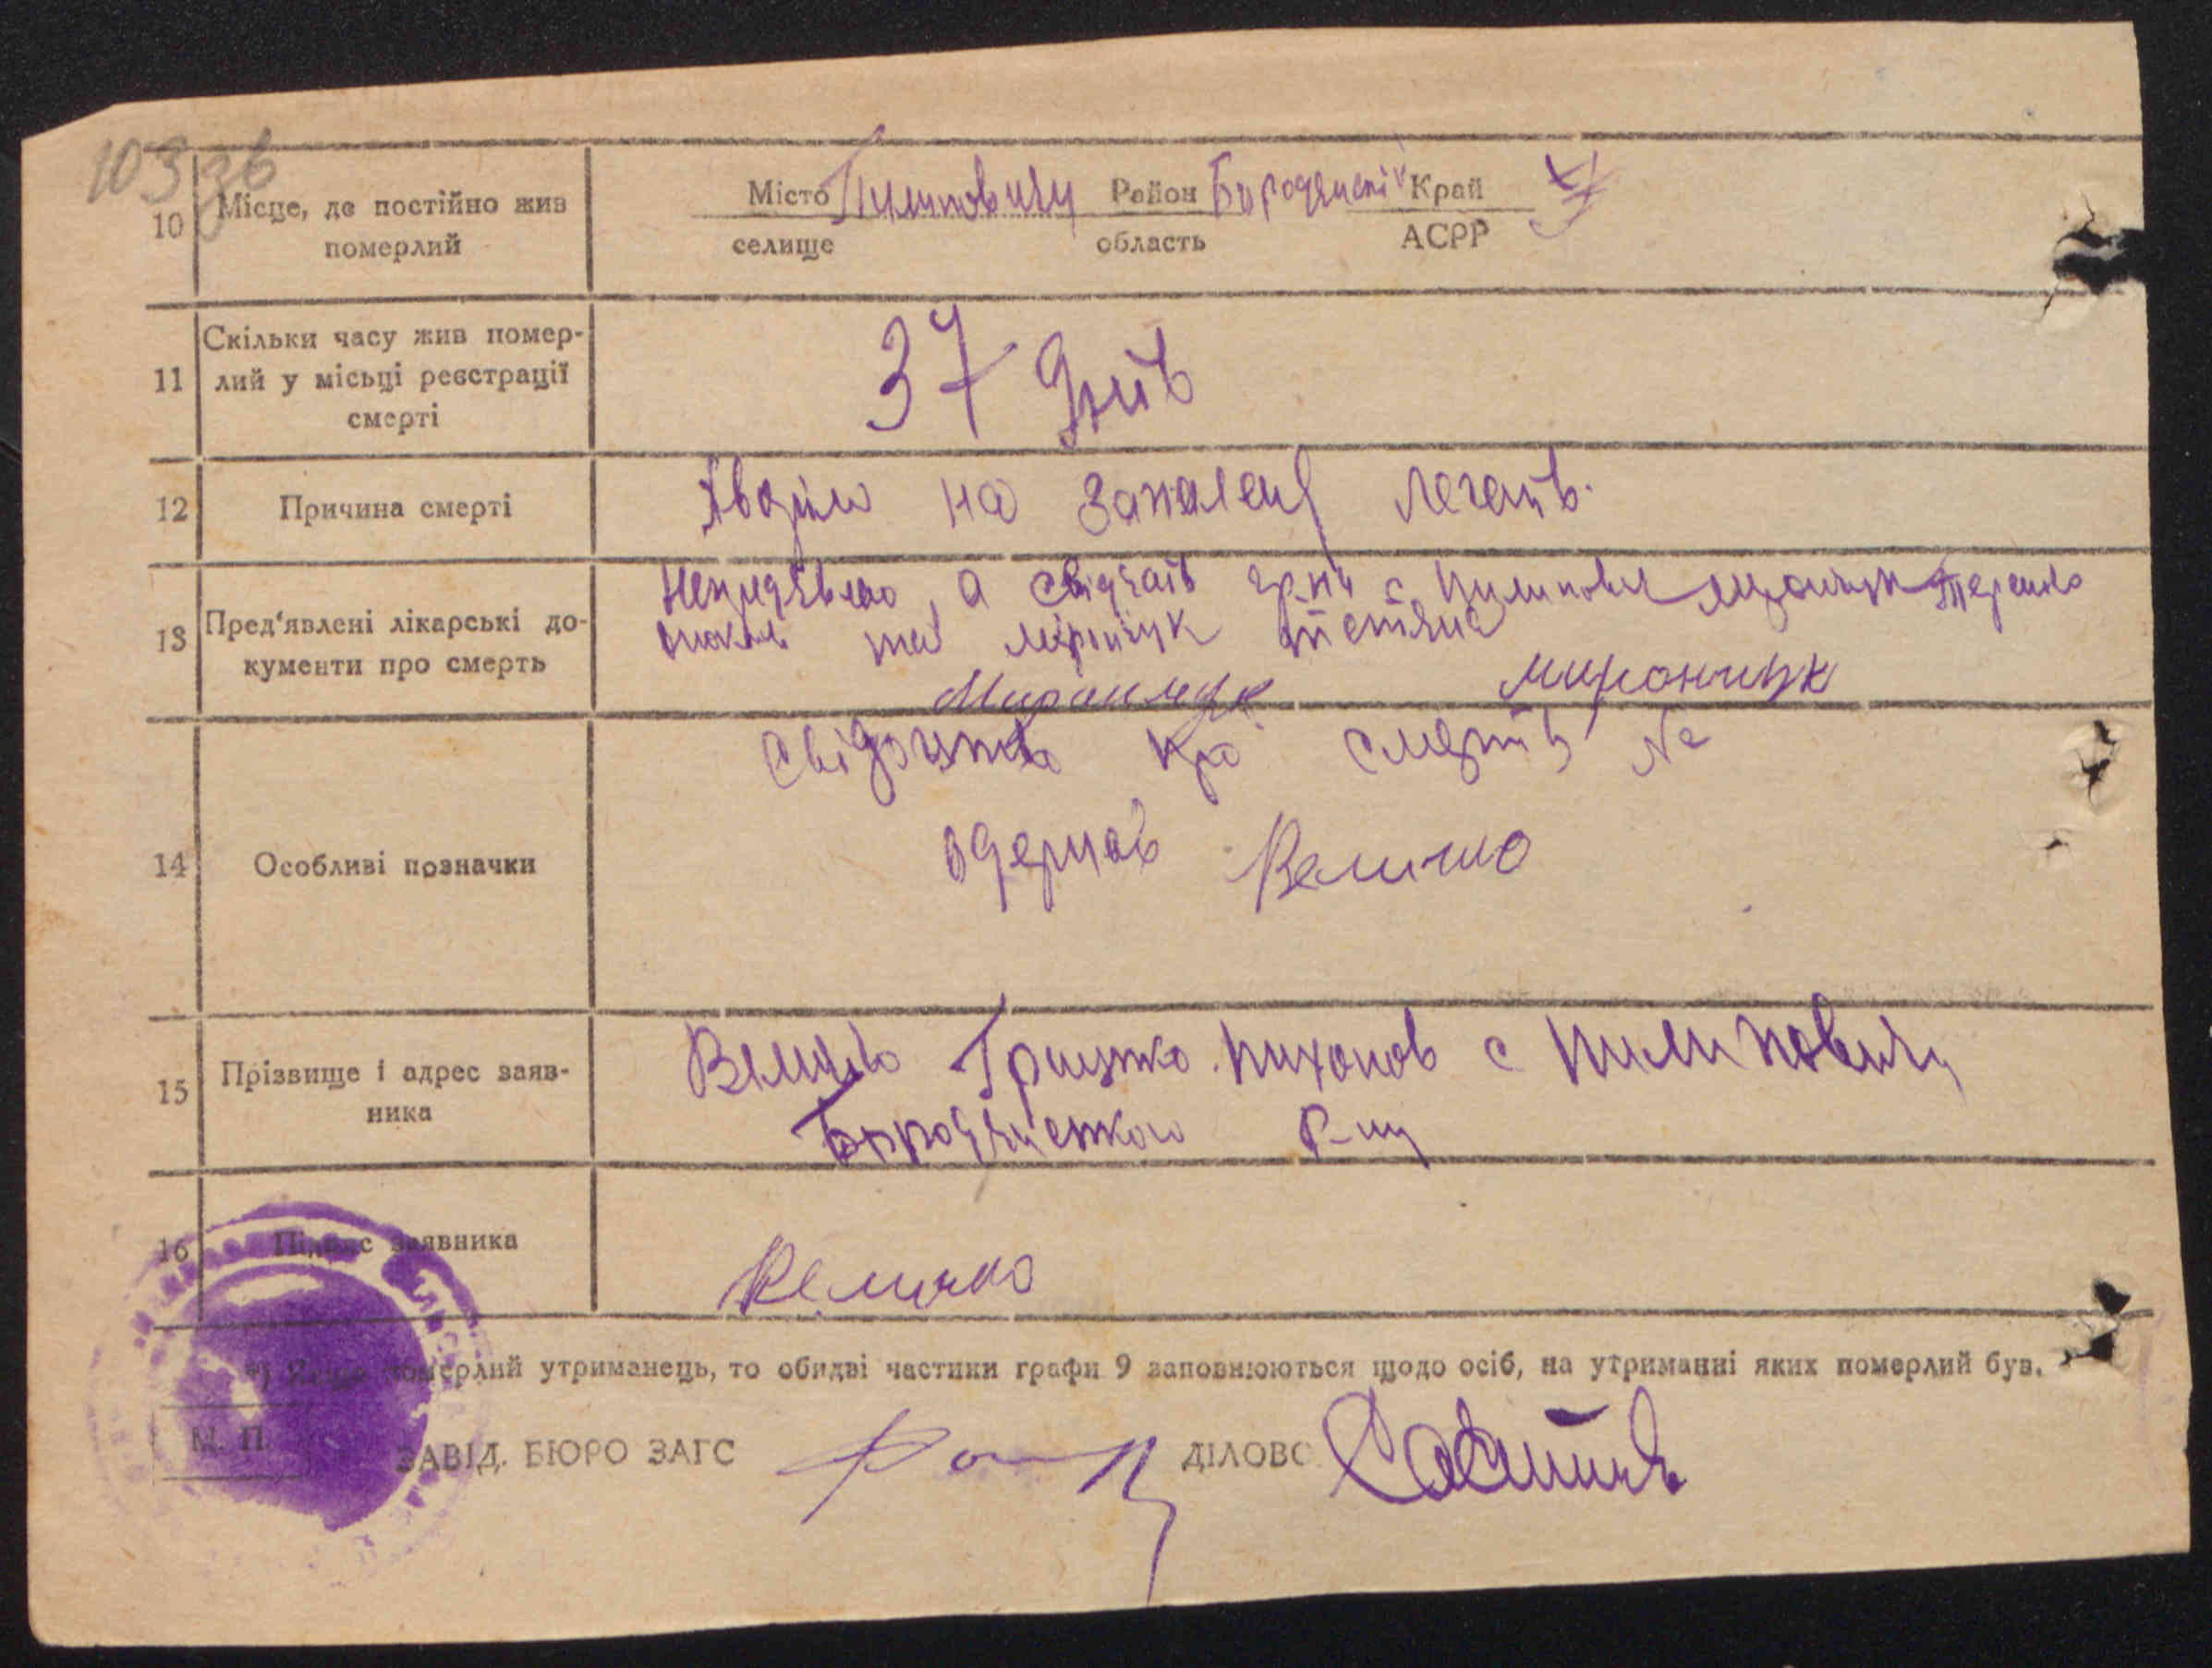 103 зв
10 Місце, де постійно жив померлий
Місто Пилиповичи Район Бородянскі Край
селище область АСРР
11 Скільки часу жив помер-
лий у місьці реєстрації
смерті
37 днів
12 Причина смерті
на запаленя легенів.
13 Пред'явлені лікарські до-
кументи про смерть
а свідчать гр-ни с. Пилипович
та Тетяна
Мирончук Мирончук
14 Особливі позначки
Свідоцтво про смерть №
одержав Величко
15 Прізвище і адрес заяв-
ника
Величко Грицько с Пилиповичи
Бородянського р-ну
16 Підпис заявника
Величко
*) Якщо померлий утриманець, то обидві частини графи 9 заповнюються щодо осіб, на утриманні яких померлий був.
М. П.
ЗАВІД. БЮРО ЗАГС ДІЛОВС